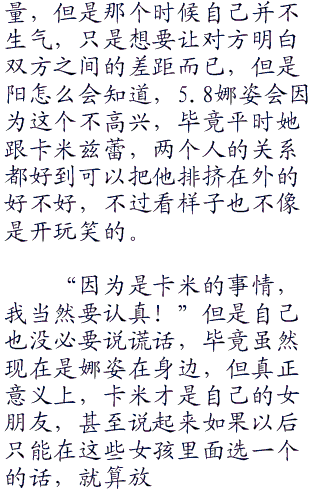 量，但是那个时候自己并不
生气，只是想要让对方明白
双方之间的差距而已，但是
阳怎么会知道，5.8娜姿会因
为这个不高兴，毕竟平时她
跟卡米兹蕾，两个人的关系
都好到可以把他排挤在外的
好不好，不过看样子也不像
是开玩笑的。
“因为是卡米的事情，
我当然要认真！”但是自己
也没必要说谎话，毕竟虽然
现在是娜姿在身边，但真正
意义上，卡米才是自己的女
朋友，甚至说起来如果以后
只能在这些女孩里面选一个
的话，就算放